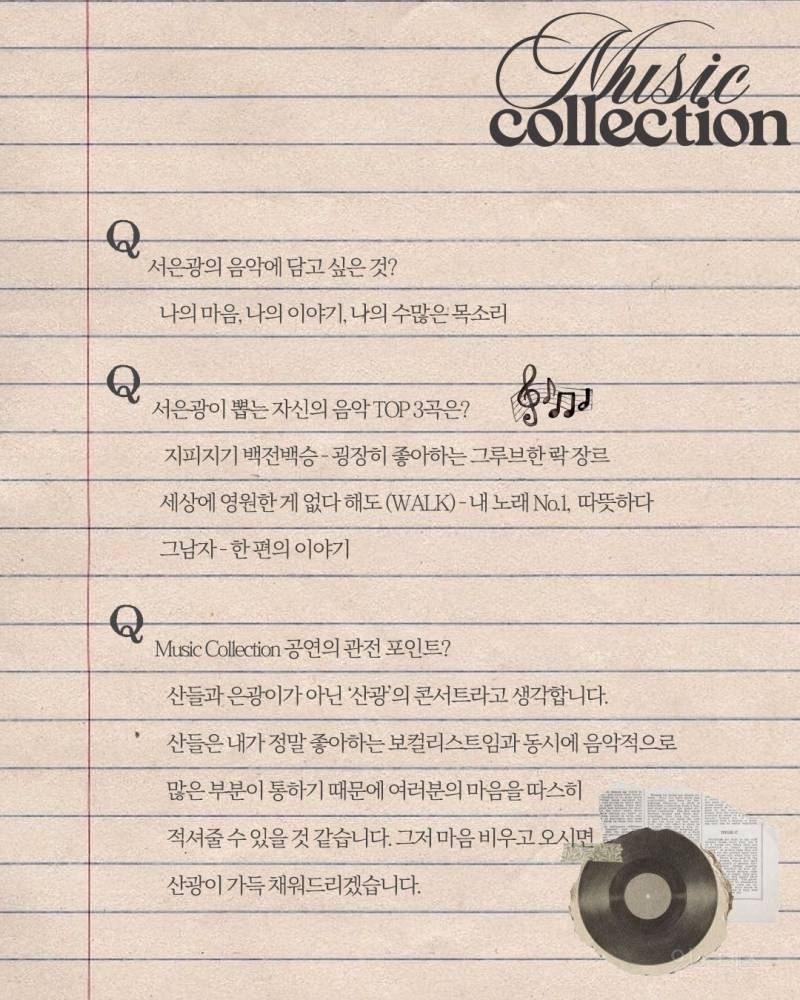 Music
collection
Q
서은광의 음악에 담고 싶은 것?
나의 마음, 나의 이야기, 나의 수많은 목소리
Q
서은광이 뽑는 자신의 음악 TOP 3곡은?
지피지기 백전백승 - 굉장히 좋아하는 그루브한 락 장르
세상에 영원한 게 없다 해도 (WALK) - 내 노래 No.1, 따뜻하다
그남자 - 한 편의 이야기
Q
Music Collection 공연의 관전 포인트?
산들과 은광이가 아닌 '산광'의 콘서트라고 생각합니다.
산들은 내가 정말 좋아하는 보컬리스트임과 동시에 음악적으로
많은 부분이 통하기 때문에 여러분의 마음을 따스히
적셔줄 수 있을 것 같습니다. 그저 마음 비우고 오시면
산광이 가득 채워드리겠습니다.